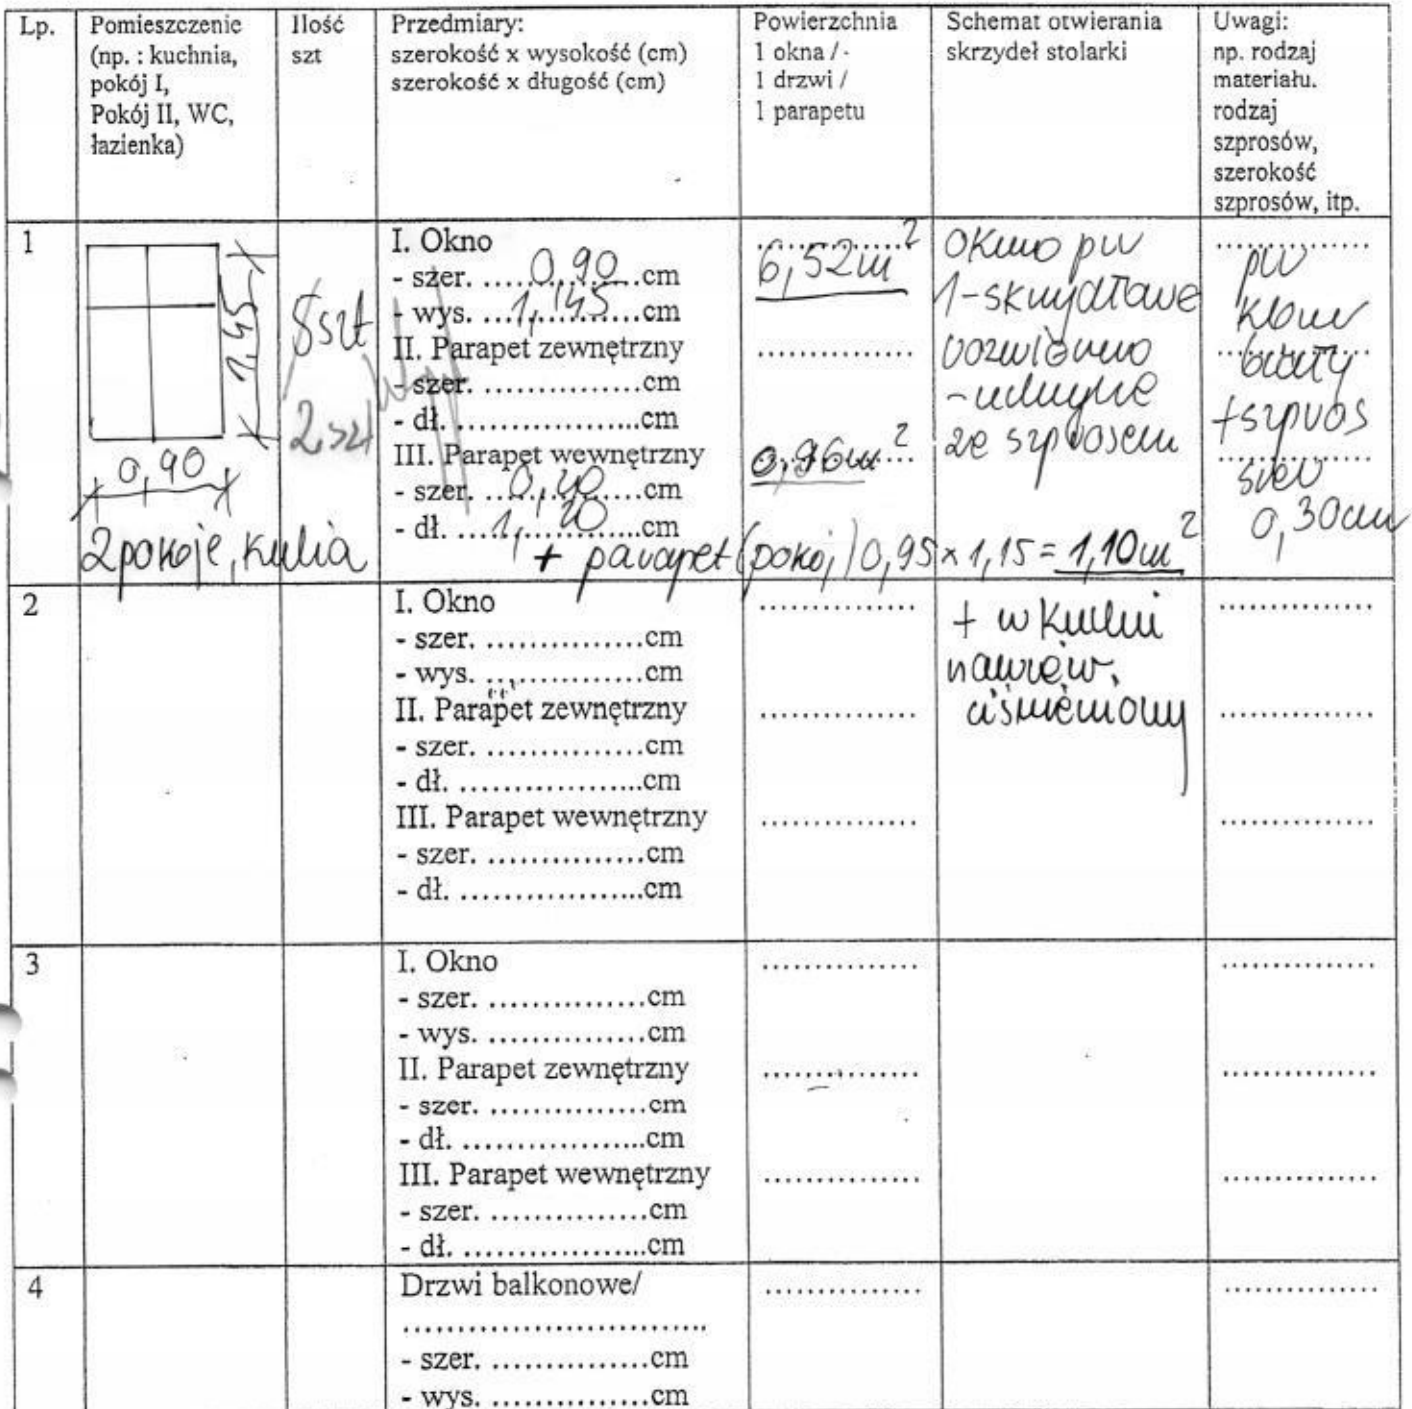 Lp.
Pomieszczenie
(np. : kuchnia,
pokój I,
Pokój II, WC,
łazienka)
Ilość
szt
Przedmiary:
szerokość x wysokość (cm)
szerokość x długość (cm)
Powierzchnia
1 okna / -
1 drzwi /
1 parapetu
Schemat otwierania
skrzydeł stolarki
Uwagi:
np. rodzaj
materiału.
rodzaj
szprosów,
szerokość
szprosów, itp.
1
1,45
0,90
2 pokoje, kuhia
5szt
2szt
I. Okno
- szer. .....0,90...cm
- wys. ...1,45.....cm
II. Parapet zewnętrzny
- szer. ...............cm
- dł. ..................cm
III. Parapet wewnętrzny
- szer. ...0,40....cm
- dł. ...1,20....cm
+ parapet (pokój) 0,95 x 1,15 = 1,10m²
6,52m²
...............
0,96m²
okno pcv
1-skrzydłowe
rozwierno
-uchylne
ze szprosem
pcv
kolor
biały
+szpros
szer
0,30cm
2
I. Okno
- szer. ...............cm
- wys. ...............cm
II. Parapet zewnętrzny
- szer. ...............cm
- dł. ..................cm
III. Parapet wewnętrzny
- szer. ...............cm
- dł. ..................cm
...............
...............
...............
+ w kuchni
nawiew.
ciśnieniowy
...............
...............
...............
3
I. Okno
- szer. ...............cm
- wys. ...............cm
II. Parapet zewnętrzny
- szer. ...............cm
- dł. ..................cm
III. Parapet wewnętrzny
- szer. ...............cm
- dł. ..................cm
...............
...............
...............
...............
...............
...............
4
Drzwi balkonowe/
..............................
- szer. ...............cm
- wys. ...............cm
...............
...............